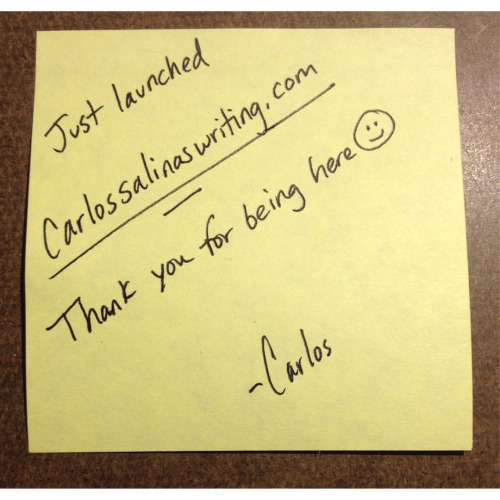 Just launched
Carlossalinaswriting.com
Thank you for being here☺
-Carlos